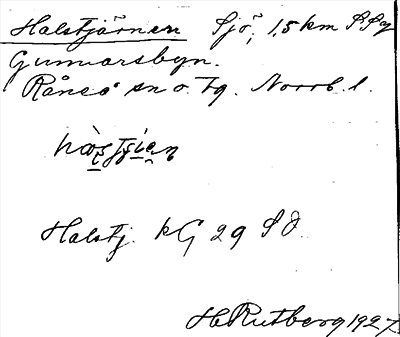 Halstjärnen Sjö, 1,5 km SSv
Gunnarsbyn.
Råneå sn o. tg. Norrb. l.
Halstj. kG 29 SO
H. Rutberg 1927